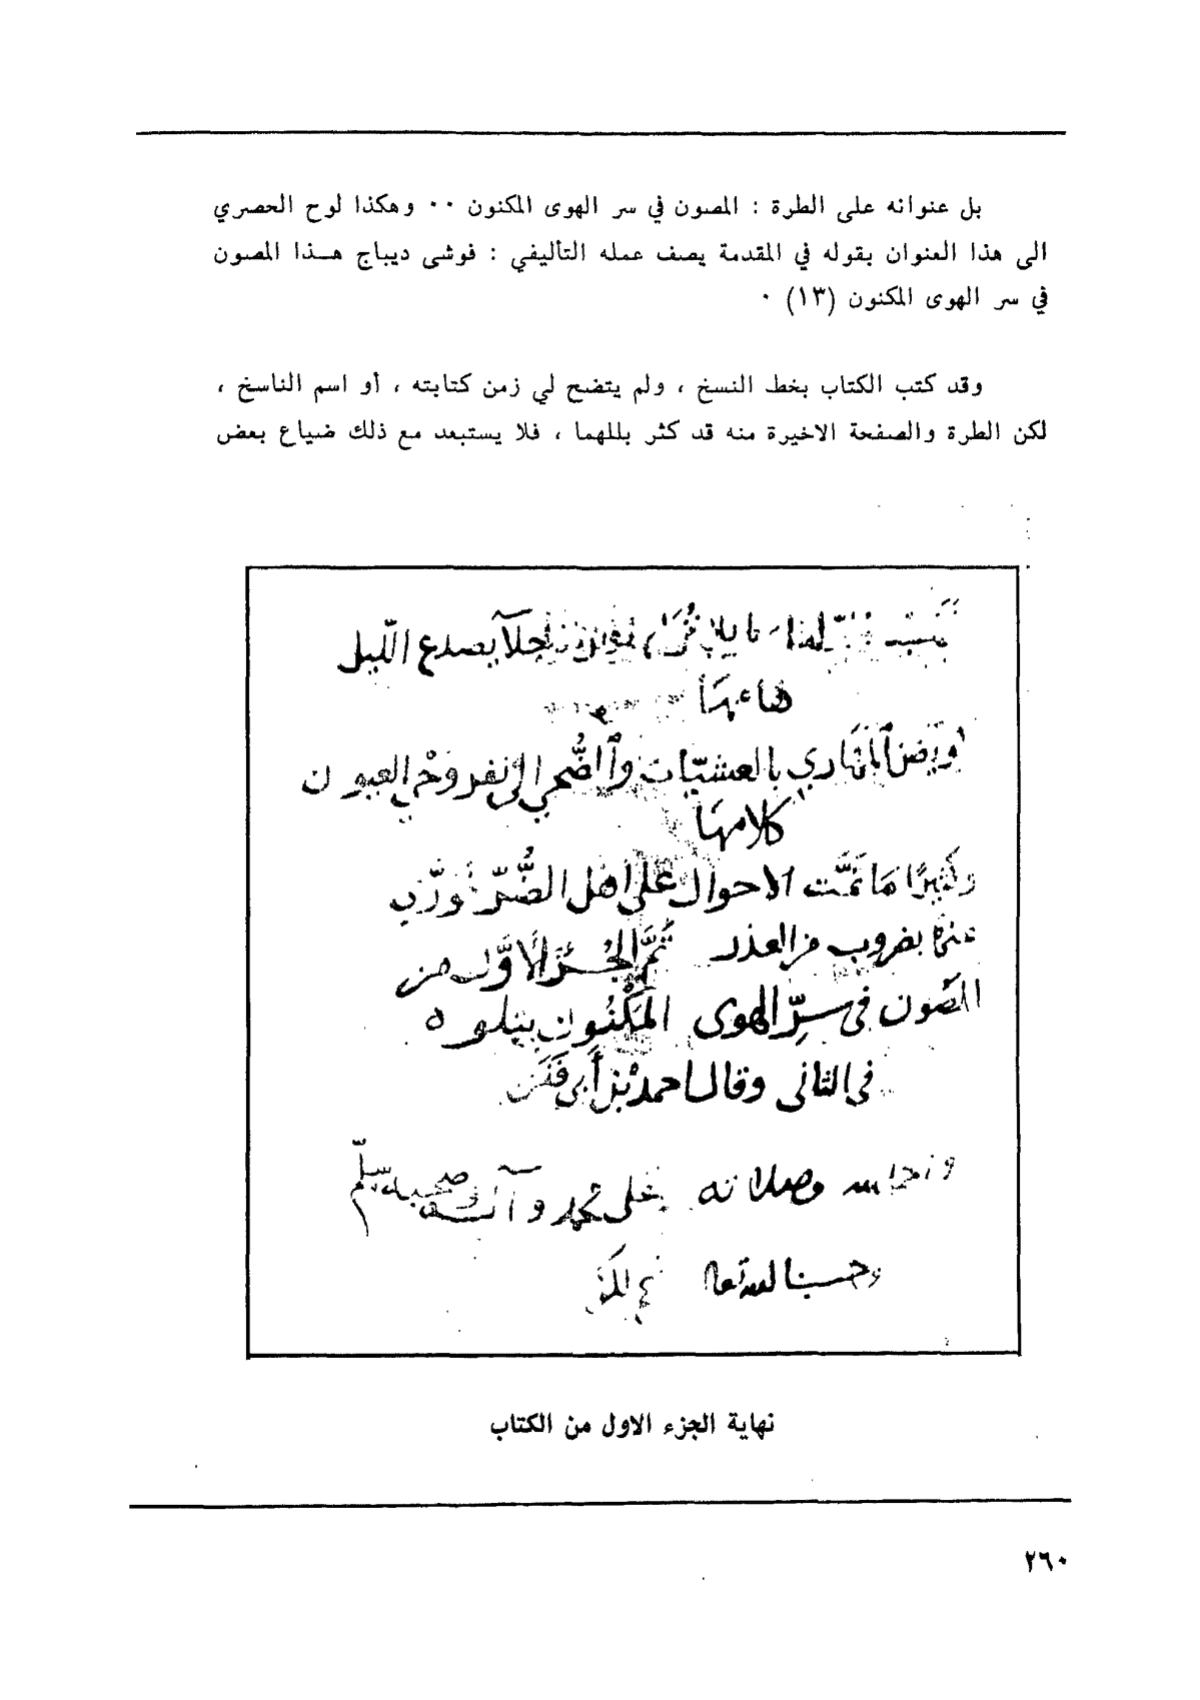 بل عنوانه على الطرة : المصون في سر الهوى المكنون ٠٠ وهكذا لوح الحصري
الى هذا العنوان بقوله في المقدمة يصف عمله التأليفي : فوشى ديباج هـذا المصون
في سر الهوى المكنون (١٣) ٠
وقد كتب الكتاب بخط النسخ ، ولم يتضح لي زمن كتابته ، أو اسم الناسخ ،
لكن الطرة والصفحة الاخيرة منه قد كثر بللهما ، فلا يستبعد مع ذلك ضياع بعض
يصدع الليل
بالعشيّات والضُّحى العيون
كلامها
وكثيرًا ما تمّت الاحوال على اهل الضُّرّ
بضروب من العذر تمَّ الجُزءُ الأوَّل من
المَصُون فى سرِّ الهوى المَكْنُون يتلوه
فى الثانى وقال احمد بن أبى فَنَن
وصلاته على محمد وآله وصحبه وسلّم
وحسبنا الله تعالى
نهاية الجزء الاول من الكتاب
٢٦٠